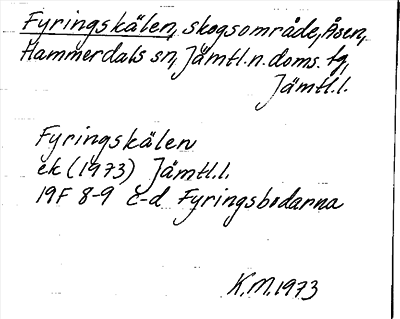 Fyringskälen, skogsområde, Åsen,
Hammerdals sn, Jämtl.n. doms. tg,
Jämtl.l.
Fyringskälen
ek (1973) Jämtl.l.
19F 8-9 c-d Fyringsbodarna
K.M. 1973